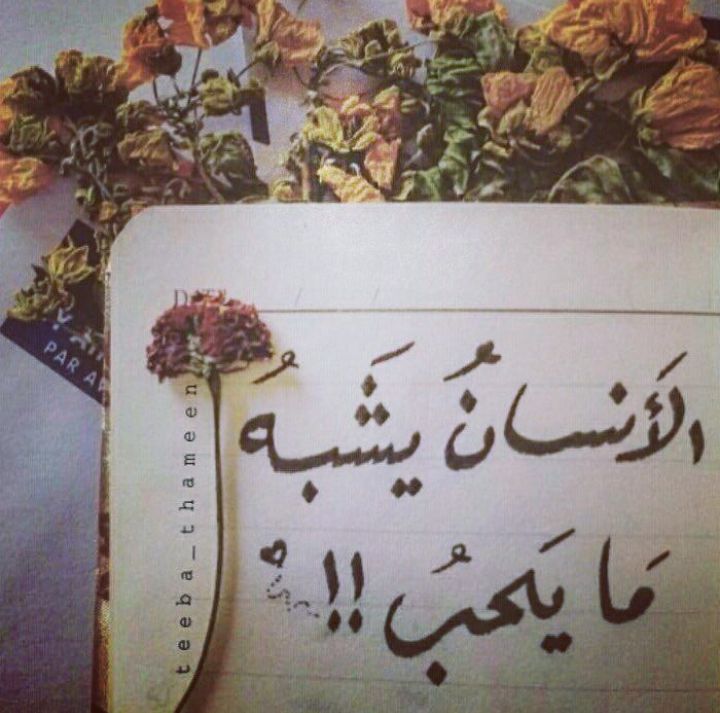 DATE / /
الأَنسانُ يشَبهُ
مَا يَحبُ !!
teeba_thameen
PAR A